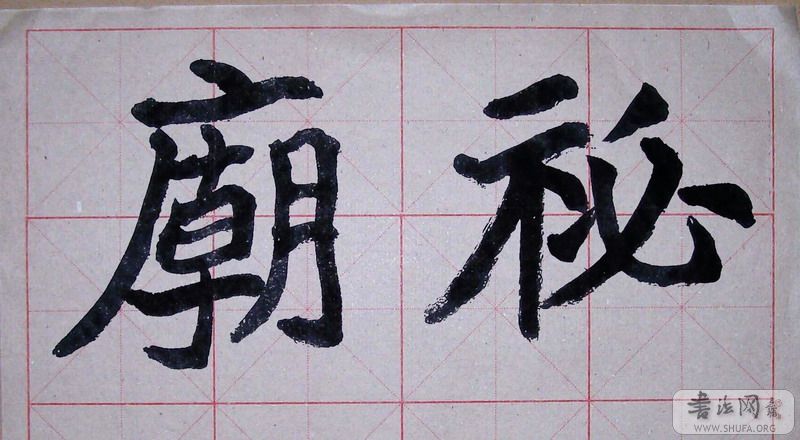 祕廟
书法网
WWW.SHUFA.ORG